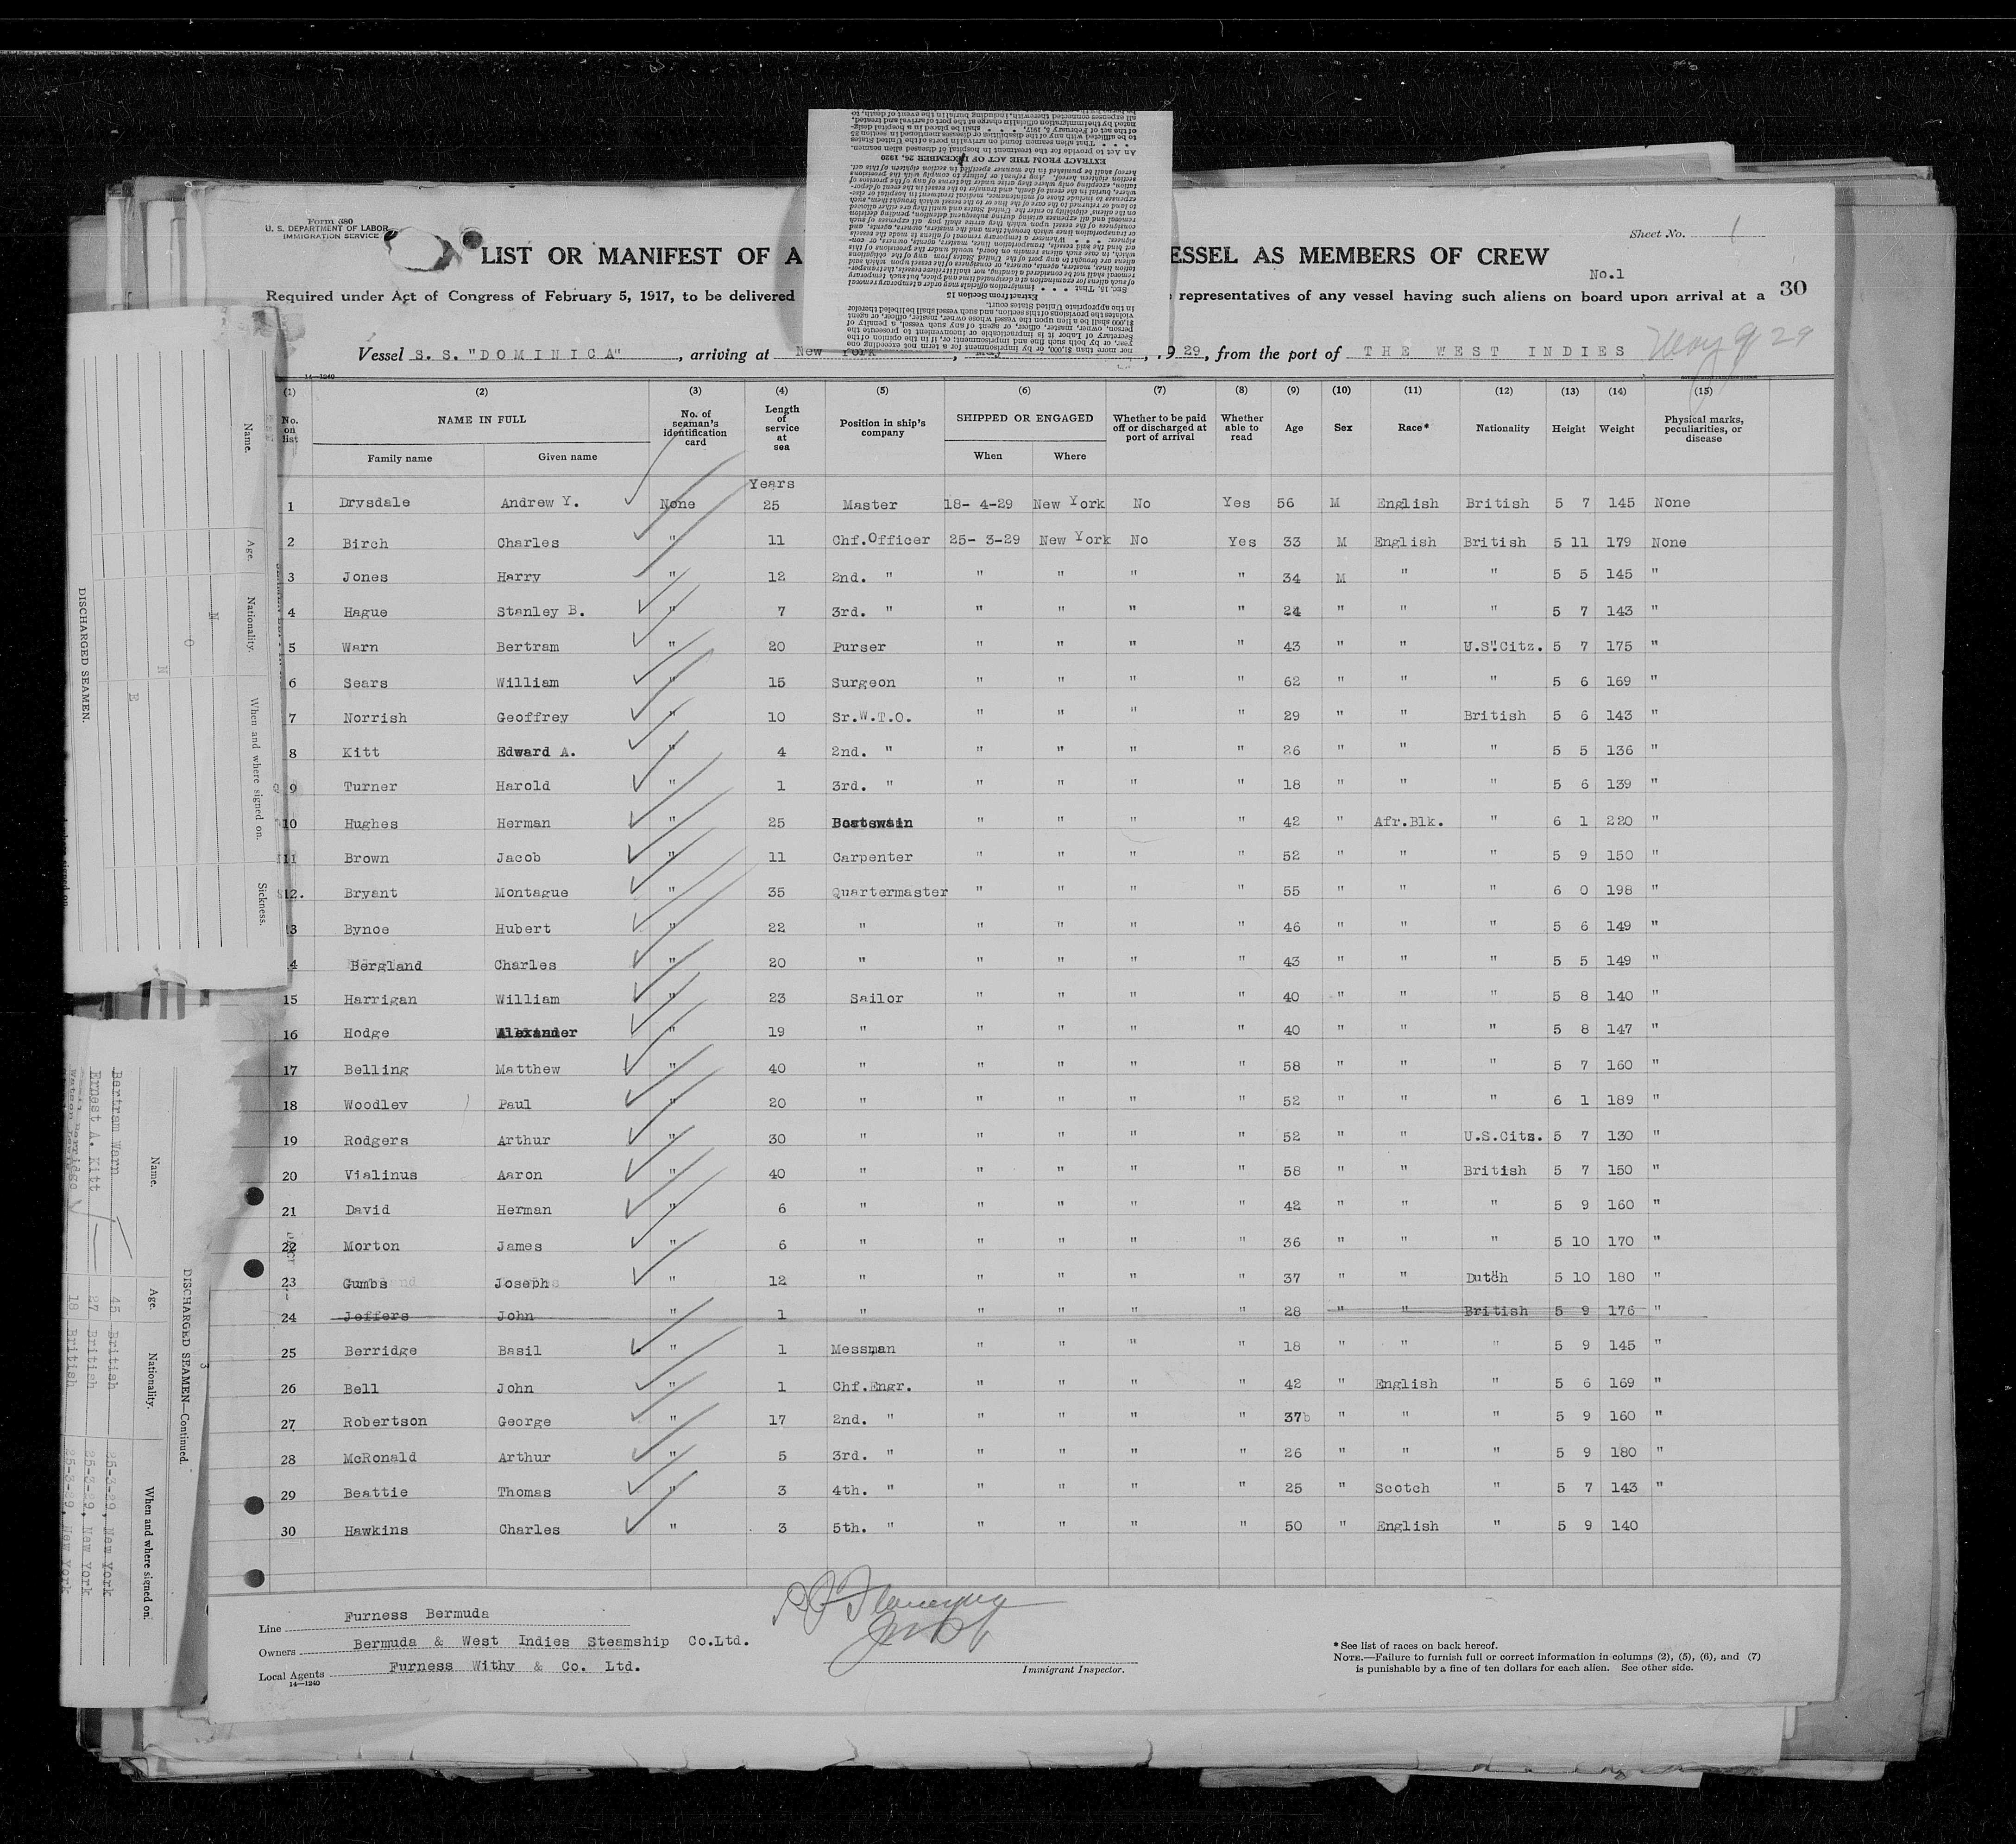 Form 680
U. S. DEPARTMENT OF LABOR
IMMIGRATION SERVICE
Sheet No. 1
LIST OR MANIFEST OF A
ESSEL AS MEMBERS OF CREW
No.1
Required under Act of Congress of February 5, 1917, to be delivered
representatives of any vessel having such aliens on board upon arrival at a
30
Vessel S. S. "DOMINICA", arriving at New York, 1929, from the port of THE WEST INDIES May 9 29
14—1240
(1) (2) (3) (4) (5) (6) (7) (8) (9) (10) (11) (12) (13) (14) (15)
No. on list NAME IN FULL No. of seaman's identification card Length of service at sea Position in ship's company SHIPPED OR ENGAGED Whether to be paid off or discharged at port of arrival Whether able to read Age Sex Race* Nationality Height Weight Physical marks, peculiarities, or disease
Family name Given name When Where
Years
1 Drysdale Andrew Y. None 25 Master 18- 4-29 New York No Yes 56 M English British 5 7 145 None
2 Birch Charles " 11 Chf.Officer 25- 3-29 New York No Yes 33 M English British 5 11 179 None
3 Jones Harry " 12 2nd. " " " " " 34 M " " 5 5 145 "
4 Hague Stanley B. " 7 3rd. " " " " " 24 " " " 5 7 143 "
5 Warn Bertram " 20 Purser " " " " 43 " " U.S.Citz. 5 7 175 "
6 Sears William " 15 Surgeon " " " " 62 " " " 5 6 169 "
7 Norrish Geoffrey " 10 Sr.W.T.O. " " " " 29 " " British 5 6 143 "
8 Kitt Edward A. " 4 2nd. " " " " " 26 " " " 5 5 136 "
9 Turner Harold " 1 3rd. " " " " " 18 " " " 5 6 139 "
10 Hughes Herman " 25 Boatswain " " " " 42 " Afr.Blk. " 6 1 220 "
11 Brown Jacob " 11 Carpenter " " " " 52 " " " 5 9 150 "
12. Bryant Montague " 35 Quartermaster " " " " 55 " " " 6 0 198 "
13 Bynoe Hubert " 22 " " " " " 46 " " " 5 6 149 "
4 Bergland Charles " 20 " " " " " 43 " " " 5 5 149 "
15 Harrigan William " 23 Sailor " " " " 40 " " " 5 8 140 "
16 Hodge Alexander " 19 " " " " " 40 " " " 5 8 147 "
17 Belling Matthew " 40 " " " " " 58 " " " 5 7 160 "
18 Woodley Paul " 20 " " " " " 52 " " " 6 1 189 "
19 Rodgers Arthur " 30 " " " " " 52 " " U.S.Citz. 5 7 130 "
20 Vialinus Aaron " 40 " " " " " 58 " " British 5 7 150 "
21 David Herman " 6 " " " " " 42 " " " 5 9 160 "
22 Morton James " 6 " " " " " 36 " " " 5 10 170 "
23 Gumbs Joseph " 12 " " " " " 37 " " Dutch 5 10 180 "
24 Jeffers John " 1 " " " " " 28 " " British 5 9 176 "
25 Berridge Basil " 1 Messman " " " " 18 " " " 5 9 145 "
26 Bell John " 1 Chf.Engr. " " " " 42 " English " 5 6 169 "
27 Robertson George " 17 2nd. " " " " " 37 " " " 5 9 160 "
28 McRonald Arthur " 5 3rd. " " " " 26 " " " 5 9 180 "
29 Beattie Thomas " 3 4th. " " " " " 25 " Scotch " 5 7 143 "
30 Hawkins Charles " 3 5th. " " " " " 50 " English " 5 9 140
Line Furness Bermuda
Owners Bermuda & West Indies Steamship Co.Ltd.
Local Agents Furness Withy & Co. Ltd.
14—1240
Immigrant Inspector.
*See list of races on back hereof.
NOTE.—Failure to furnish full or correct information in columns (2), (5), (6), and (7)
is punishable by a fine of ten dollars for each alien. See other side.
DISCHARGED SEAMEN.
Name. Age. Nationality. When and where signed on. Sickness.
N O N E
DISCHARGED SEAMEN—Continued.
3
Name. Age. Nationality. When and where signed on.
Bertram Warn 45 British 25-3-29, New York
Ernest A. Kitt 27 British 25-3-29, New York
18 British 25-3-29, New York
EXTRACT FROM THE ACT OF DECEMBER 26, 1920
An Act to provide for the treatment in hospital of diseased alien seamen.
Extract from Section 15